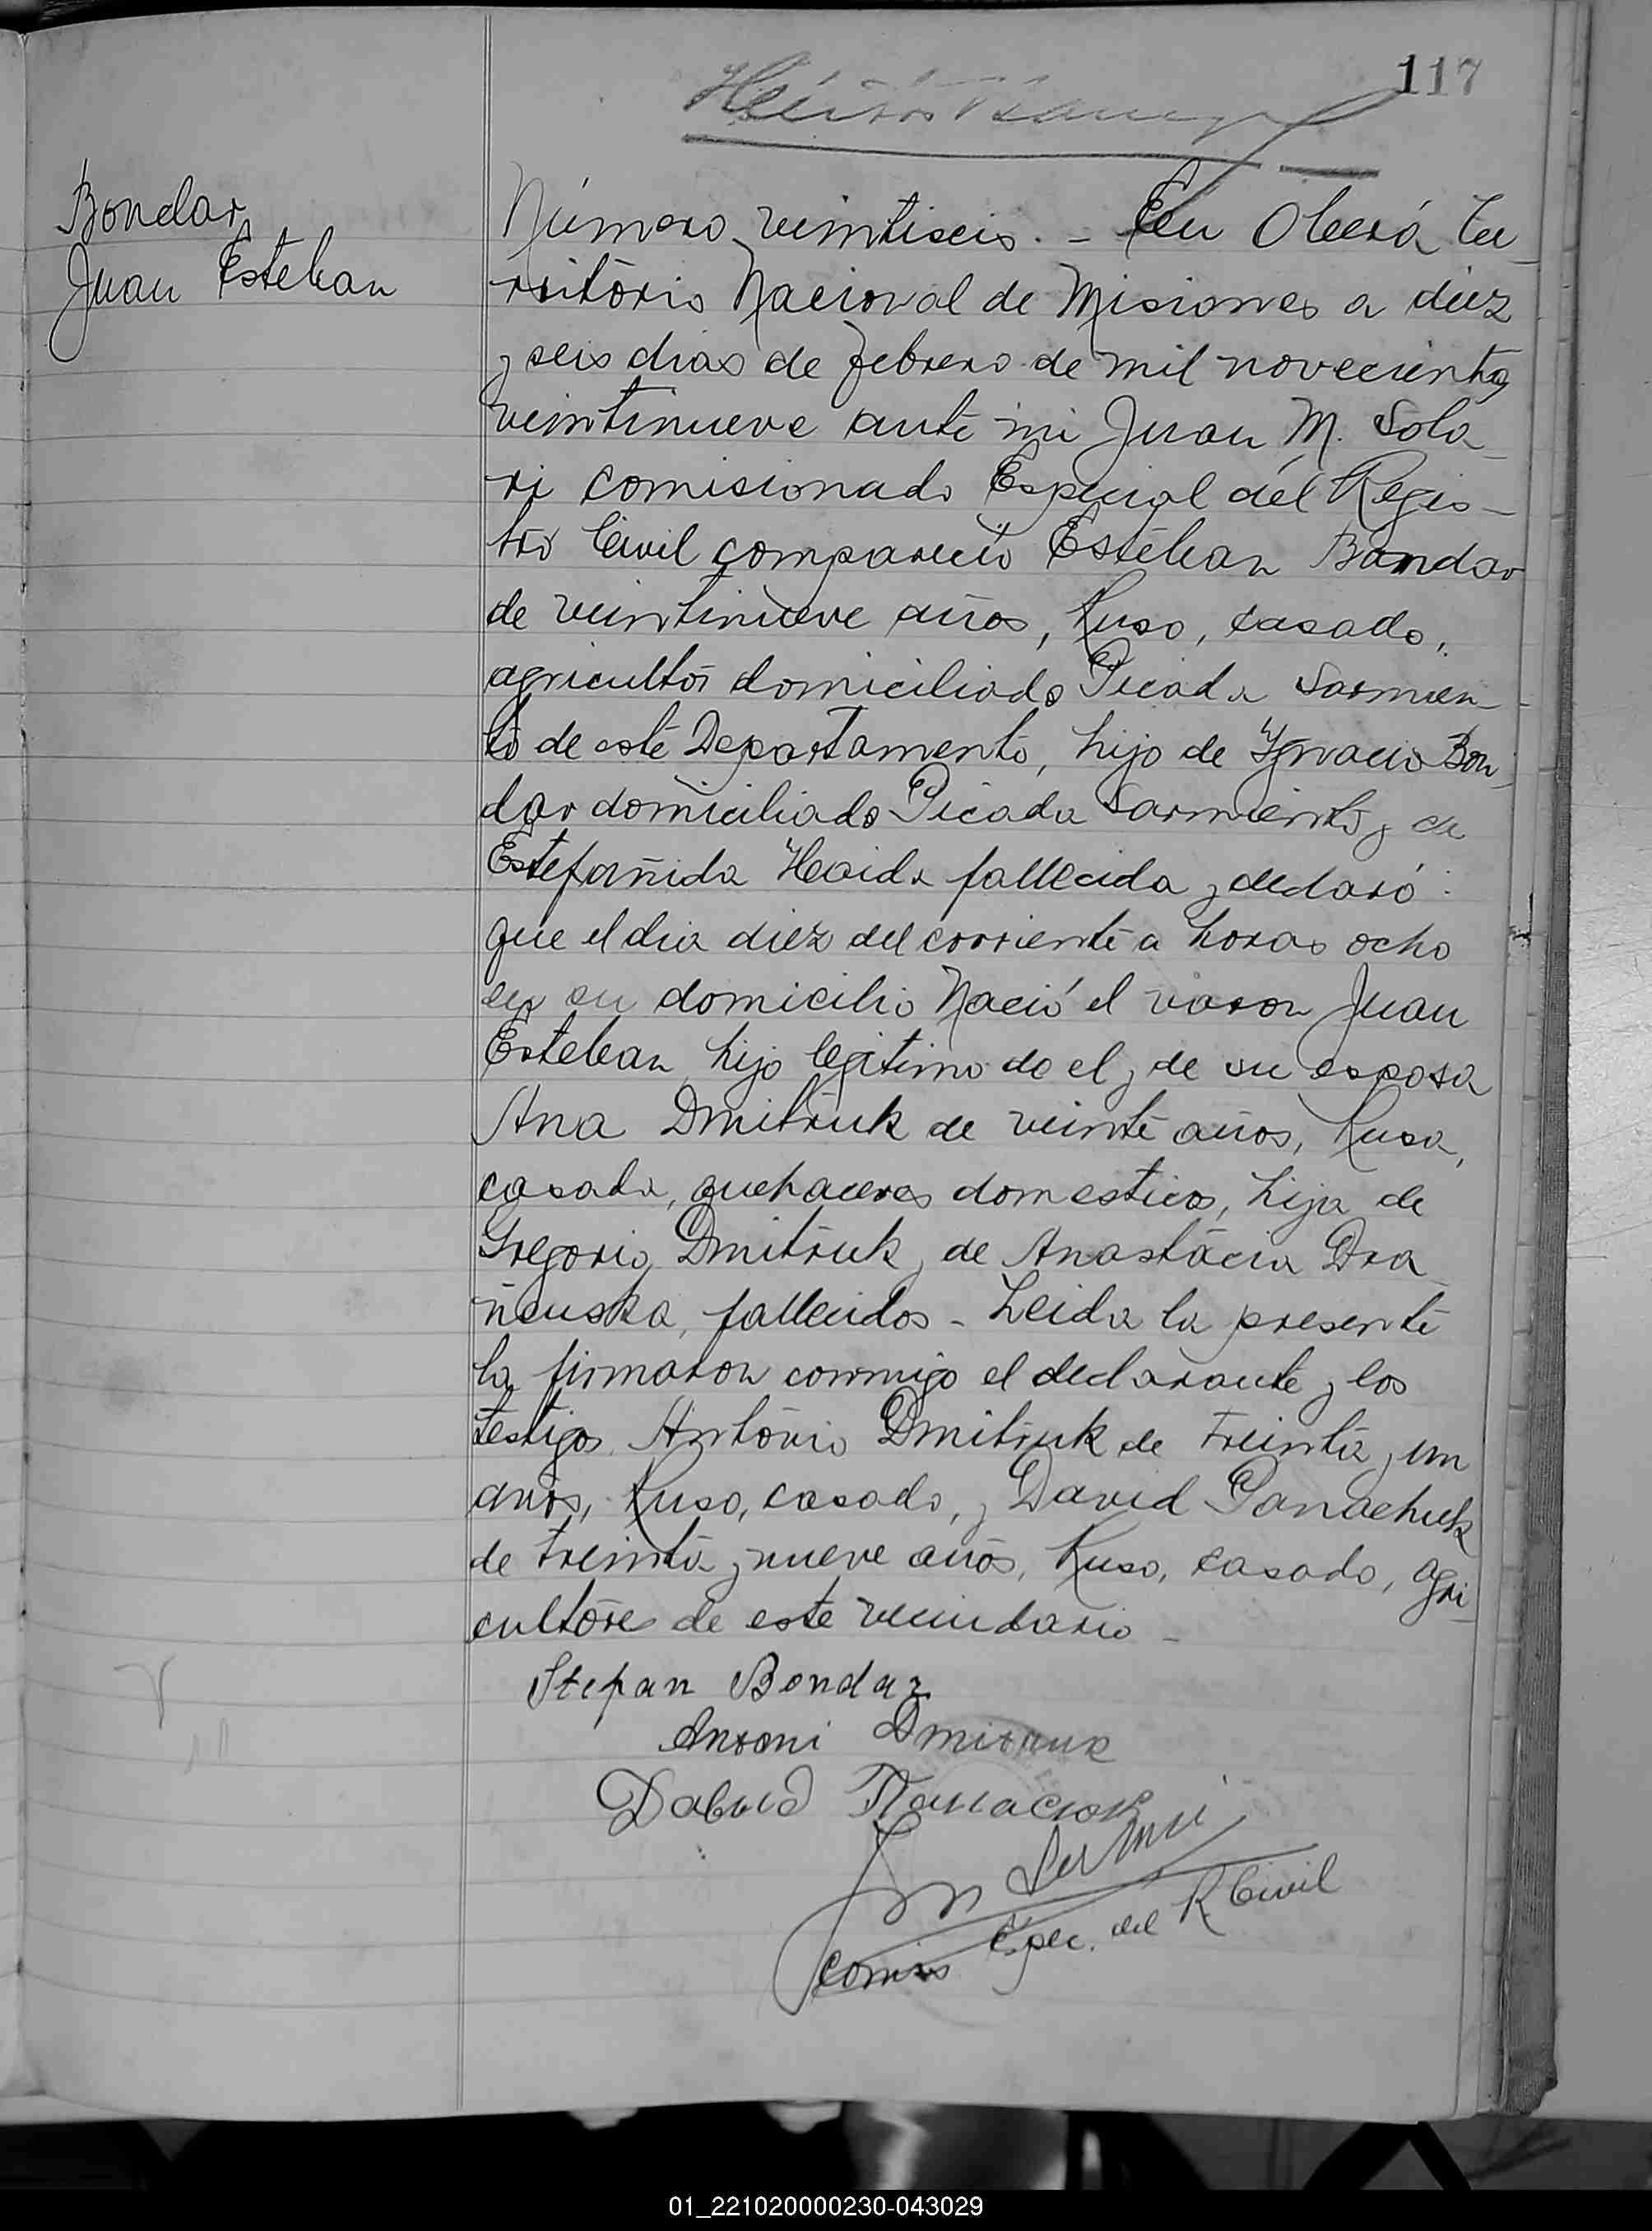 117
Bondar,
Juan Esteban
Número veintiseis. - En Oberá Te
rritorio Nacional de Misiones a diez
y seis dias de febrero de mil novecientos
veintinueve ante mi Juan M. Sola
ri comisionado Especial del Regis-
tro Civil compareció Esteban Bandar
de veintinueve años, Ruso, casado,
agricultor domiciliado Picada Sarmien-
to de este Departamento, hijo de Ygnacio Bon
dar domiciliado Picada Sarmiento y de
Estefañida Haida fallecida y declaró:
que el dia diez del corriente a horas ocho
en su domicilio Nació el varon Juan
Esteban hijo legitimo de el y de su esposa
Ana Dmitruk de veinte años, Rusa,
casada, quehaceres domesticos, hija de
Gregorio Dmitruk y de Anastacia Dra
ñeuska, fallecidos - Leida la presente
la firmaron conmigo el declarante y los
testigos Antonio Dmitruk de treinta y un
años, Ruso, casado, y David Panachuk
de treinta y nueve años, Ruso, casado, agri
cultores de este vecindario -
Stepan Bondar
Antoni Dmitruk
Давид Панасюк
Comis Espec. del R. Civil
01_221020000230-043029